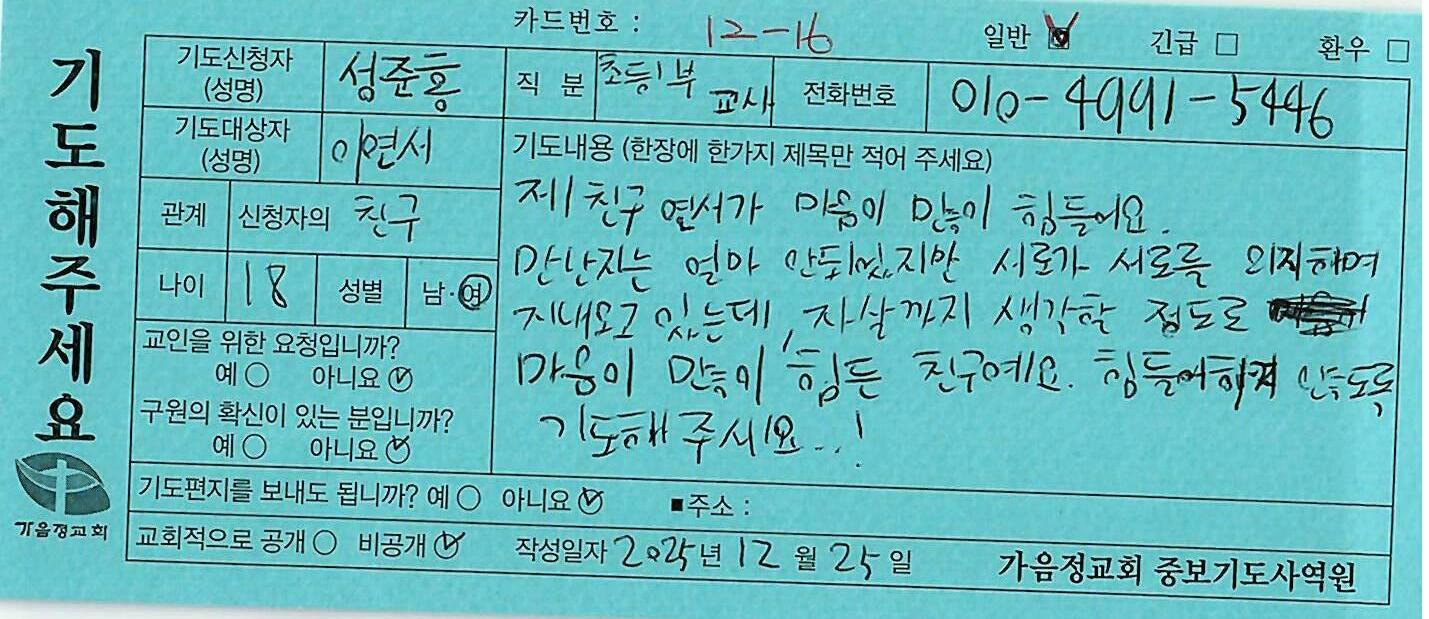 카드번호 : 12-16 일반 긴급 □ 환우 □
기도해주세요
가음정교회
기도신청자 (성명) 성준홍 직 분 초등1부 교사 전화번호 010-4991-5446
기도대상자 (성명) 이연서
관계 신청자의 친구
나이 18 성별 남·여
교인을 위한 요청입니까?
예 ○ 아니요
구원의 확신이 있는 분입니까?
예 ○ 아니요
기도내용 (한장에 한가지 제목만 적어 주세요)
제 친구 연서가 마음이 많이 힘들어요.
만난지는 얼마 안되었지만 서로가 서로를 의지하며
지내오고 있는데, 자살까지 생각할 정도로
마음이 많이 힘든 친구예요. 힘들어하지 않도록
기도해 주세요..!
기도편지를 보내도 됩니까? 예 ○ 아니요 ■주소 :
교회적으로 공개 ○ 비공개 작성일자 2025년 12월 25일 가음정교회 중보기도사역원